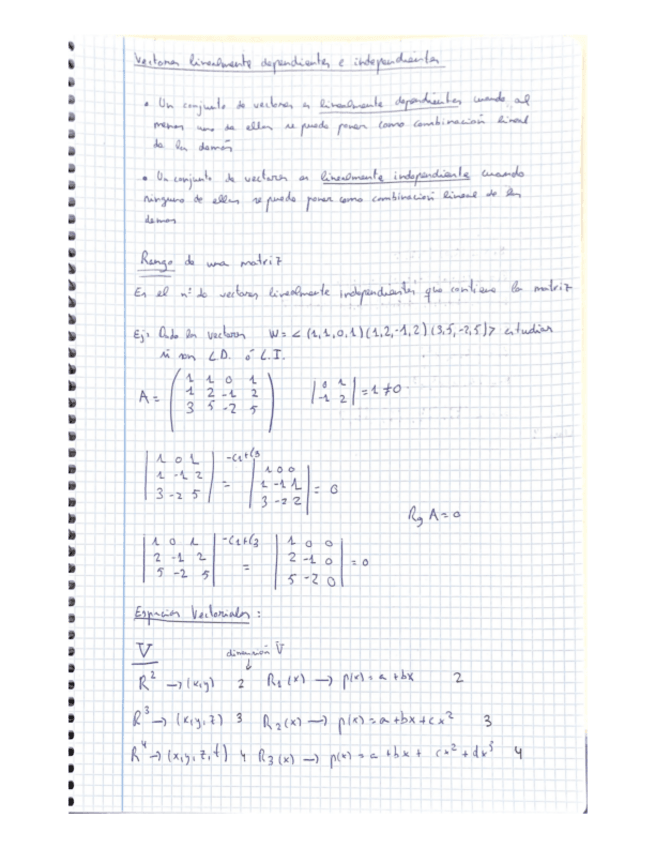 Vectores linealmente dependientes e independientes
• Un conjunto de vectores es linealmente dependientes cuando al
menos uno de ellos se puede poner como combinación lineal
de los demás
• Un conjunto de vectores es linealmente independiente cuando
ninguno de ellos se puede poner como combinación lineal de los
demas
Rango de una matriz
Es el nº de vectores linealmente independientes que contiene la matriz
Ej: Dado los vectores W = < (1,1,0,1)(1,2,-1,2)(3,5,-2,5)> estudiar
si son L.D. ó L.I.
A = ( 1 1 0 1
1 2 -1 2
3 5 -2 5 ) | 0 1
-1 2 | = 1 ≠ 0
| 1 0 1
1 -1 2
3 -2 5 | -C1+C3 = | 1 0 0
1 -1 1
3 -2 2 | = 0
Rg A = 0
| 1 0 1
2 -1 2
5 -2 5 | -C1+C3 = | 1 0 0
2 -1 0
5 -2 0 | = 0
Espacios Vectoriales:
V dimensión V
↓
R² → (x,y) 2 R₁(x) → p(x) = a + bx 2
R³ → (x,y,z) 3 R₂(x) → p(x) = a + bx + cx² 3
R⁴ → (x,y,z,t) 4 R₃(x) → p(x) = a + bx + cx² + dx³ 4